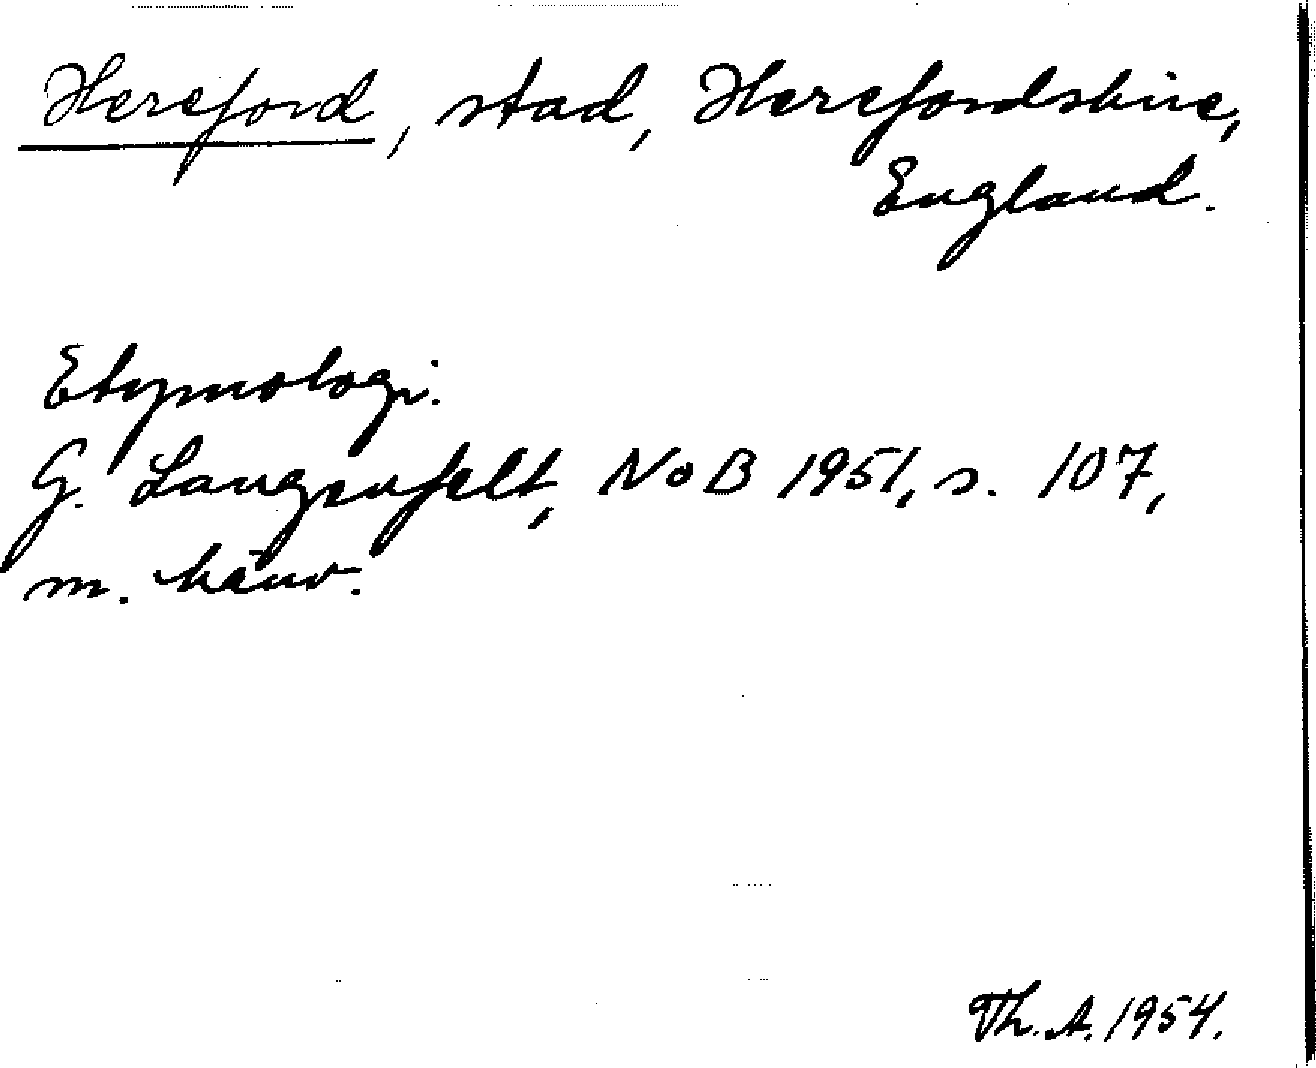 Hereford, stad, Herefordshire,
England.
Etymologi.
G. Langenfelt, NoB 1951, s. 107,
m. hänv.
Th. A. 1954.